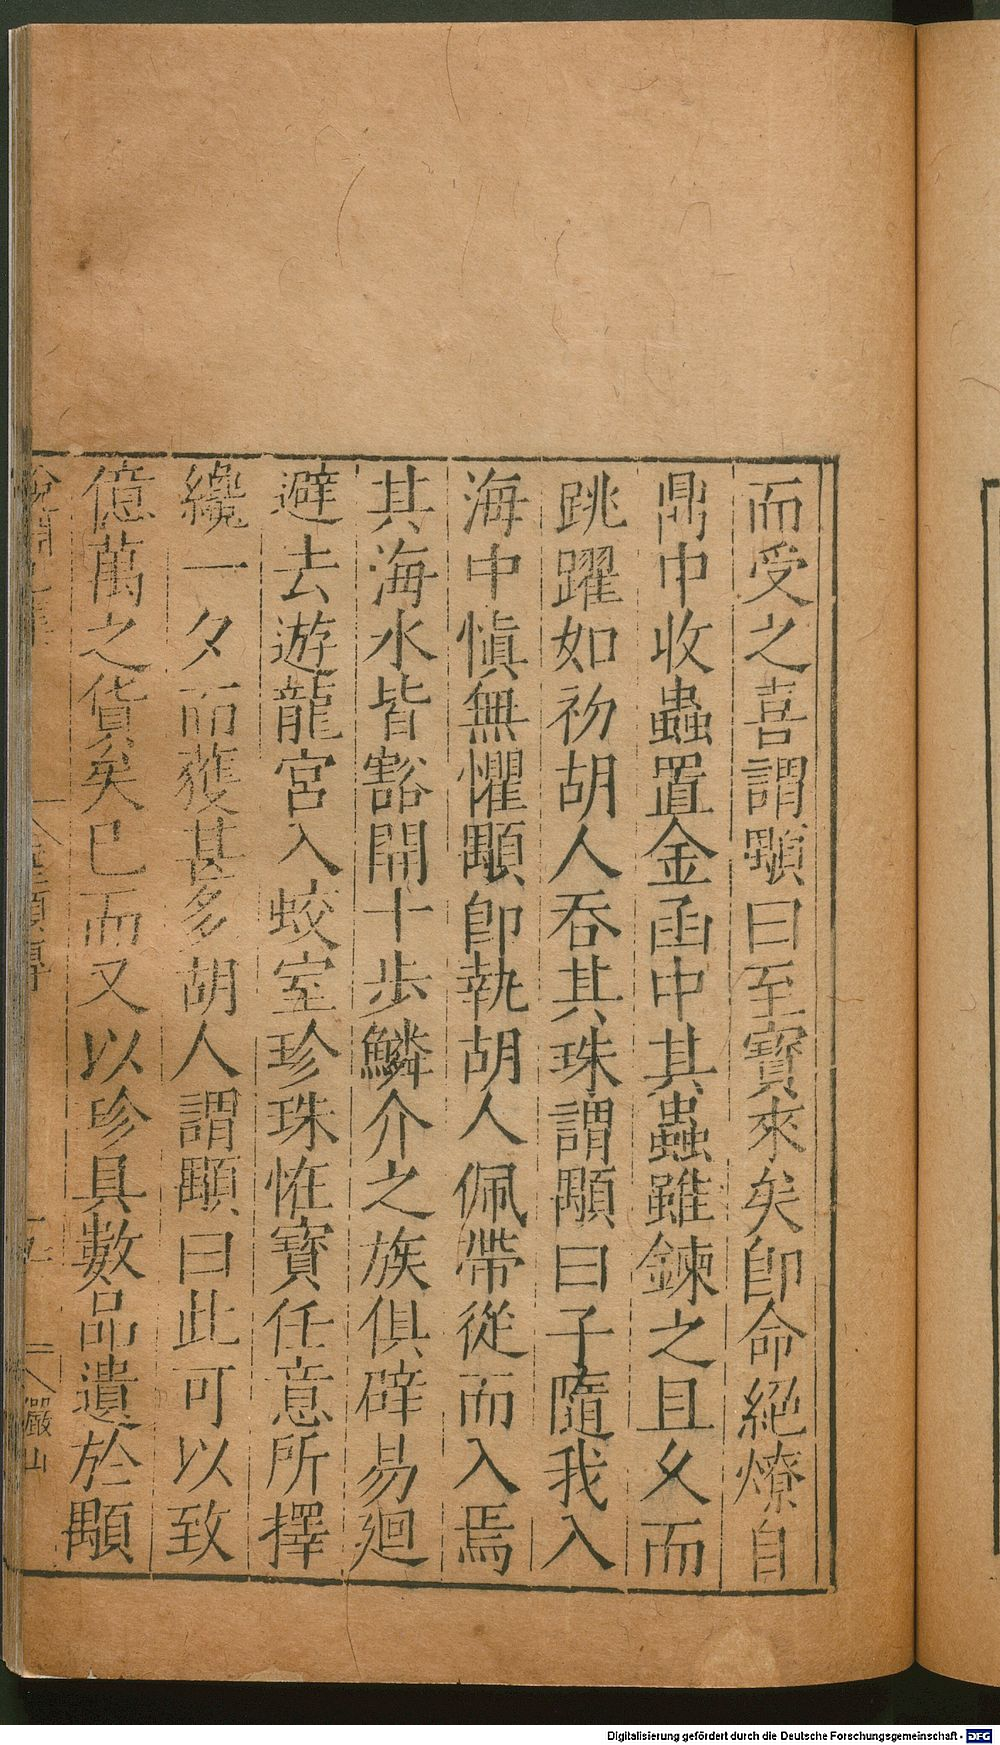 而受之喜謂顒曰至寶來矣即命絕燎自
鼎中收蟲置金函中其蟲雖鍊之且久而
跳躍如初胡人吞其珠謂顒曰子隨我入
海中慎無懼顒即執胡人佩帶從而入焉
其海水皆豁開十步鱗介之族俱辟易廻
避去遊龍宮入蛟室珍珠恠寶任意所擇
纔一夕而獲甚多胡人謂顒曰此可以致
億萬之貨矣已而又以珍具數品遺於顒
儼山
Digitalisierung gefördert durch die Deutsche Forschungsgemeinschaft - DFG